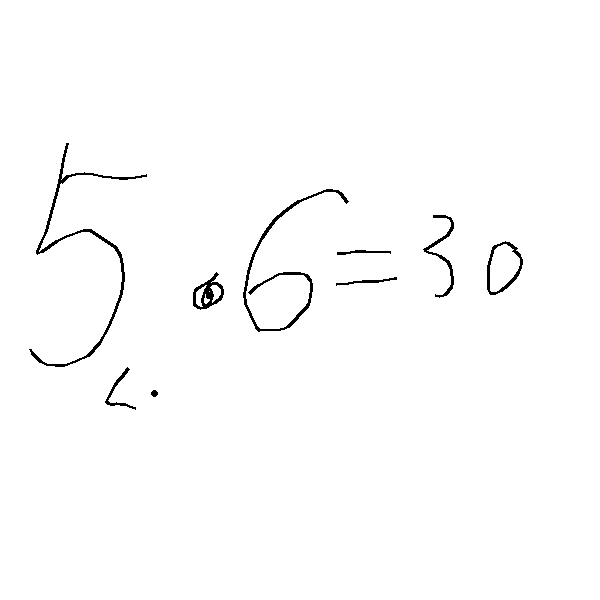 5 · 6 = 30